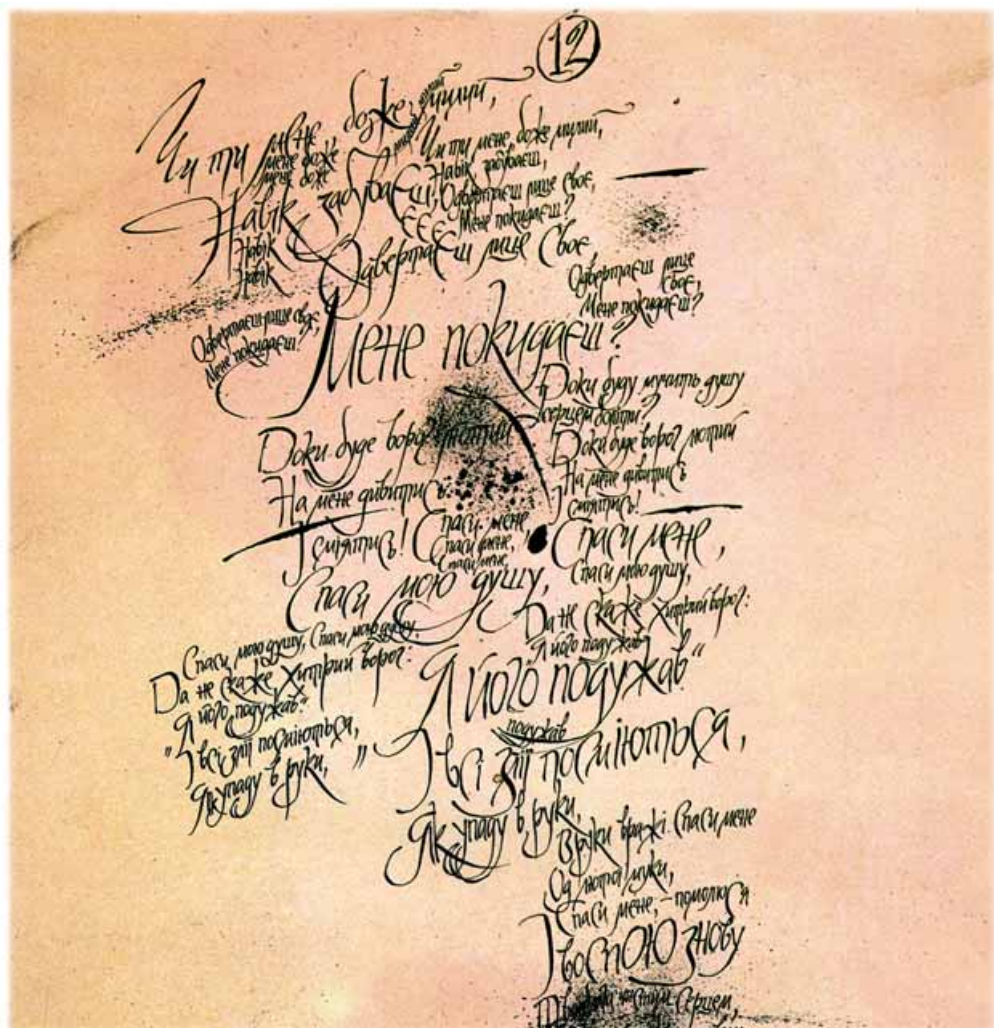 12
Чи ти мене, боже милий,
мене боже
мене боже
Чи ти мене, боже милий,
Навік забуваєш,
Одвертаєш лице своє,
Мене покидаєш?
Навік забуваєш,
Є Є Є
Навік
Навік
Одвертаєш лице Своє
Одвертаєш лице
своє,
Мене покидаєш?
Одвертаєш лице своє,
Мене покидаєш?
Мене покидаєш?
Доки буду мучить душу
І серцем боліти?
Доки буде ворог лютий
На мене дивитись
І сміятись!
Доки буде ворог лютий
На мене дивитись
І сміятись! Спаси мене,
Спаси мене,
Спаси мене,
Спаси мене,
Спаси мою душу,
Спаси мою душу,
Да не скаже хитрий ворог:
Я його подужав
Спаси мою душу, Спаси мою душу,
Да не скаже хитрий ворог:
"Я його подужав."
"І всі злії посміються,
Як упаду в руки, "
Я його подужав."
подужав
І всі злії посміються,
Як упаду в руки,
В руки вражі. Спаси мене
Од лютої муки,
Спаси мене, – помолюся
І воспОЮ знову
серцем,